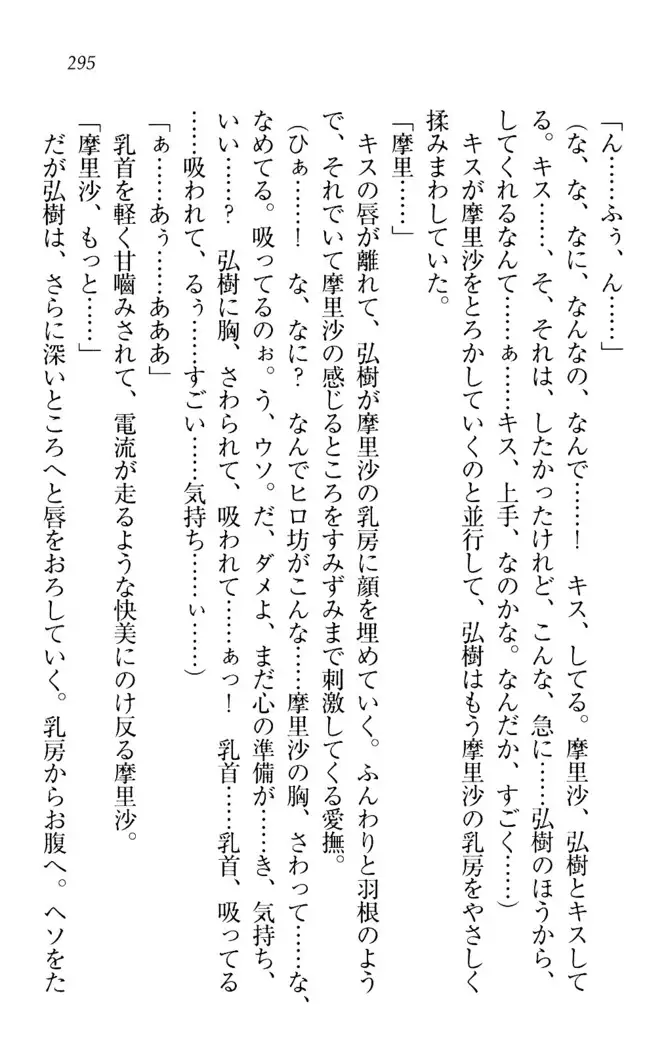 295
「ん……ふぅ、ん……」
(な、な、なに、なんなの、なんで……！　キス、してる。摩里沙、弘樹とキスして
る。キス……、そ、それは、したかったけれど、こんな、急に……弘樹のほうから、
してくれるなんて……ぁ……キス、上手、なのかな。なんだか、すごく……)
キスが摩里沙をとろかしていくのと並行して、弘樹はもう摩里沙の乳房をやさしく
揉みまわしていた。
「摩里……」
キスの唇が離れて、弘樹が摩里沙の乳房に顔を埋めていく。ふんわりと羽根のよう
で、それでいて摩里沙の感じるところをすみずみまで刺激してくる愛撫。
(ひぁ……！　な、なに？　なんでヒロ坊がこんな……摩里沙の胸、さわって……な、
なめてる。吸ってるのぉ。う、ウソ。だ、ダメよ、まだ心の準備が……き、気持ち、
いい……？　弘樹に胸、さわられて、吸われて……ぁっ！　乳首……乳首、吸ってる
……吸われて、るぅ……すごい……気持ち……ぃ……)
「ぁ……あぅ……あああ」
乳首を軽く甘嚙みされて、電流が走るような快美にのけ反る摩里沙。
「摩里沙、もっと……」
だが弘樹は、さらに深いところへと唇をおろしていく。乳房からお腹へ。ヘソをた